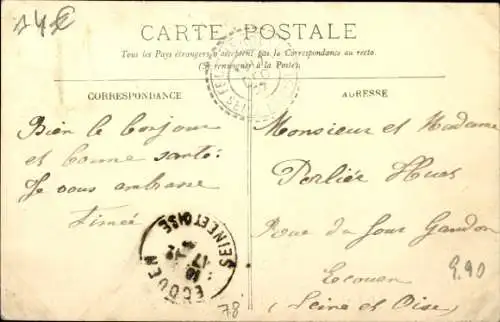 14€
CARTE POSTALE
Tous les Pays étrangers n'acceptent pas la Correspondance au recto.
(Se renseigner à la Poste).
CORRESPONDANCE
ADRESSE
Bien le bonjour
et bonne santé.
Je vous embrasse
Aimée
Monsieur et Madame
Perliée Hues
Rue du Four Gaudon
Ecouen
(Seine et Oise)
ECOUEN
SEINE ET OISE
9.90
78